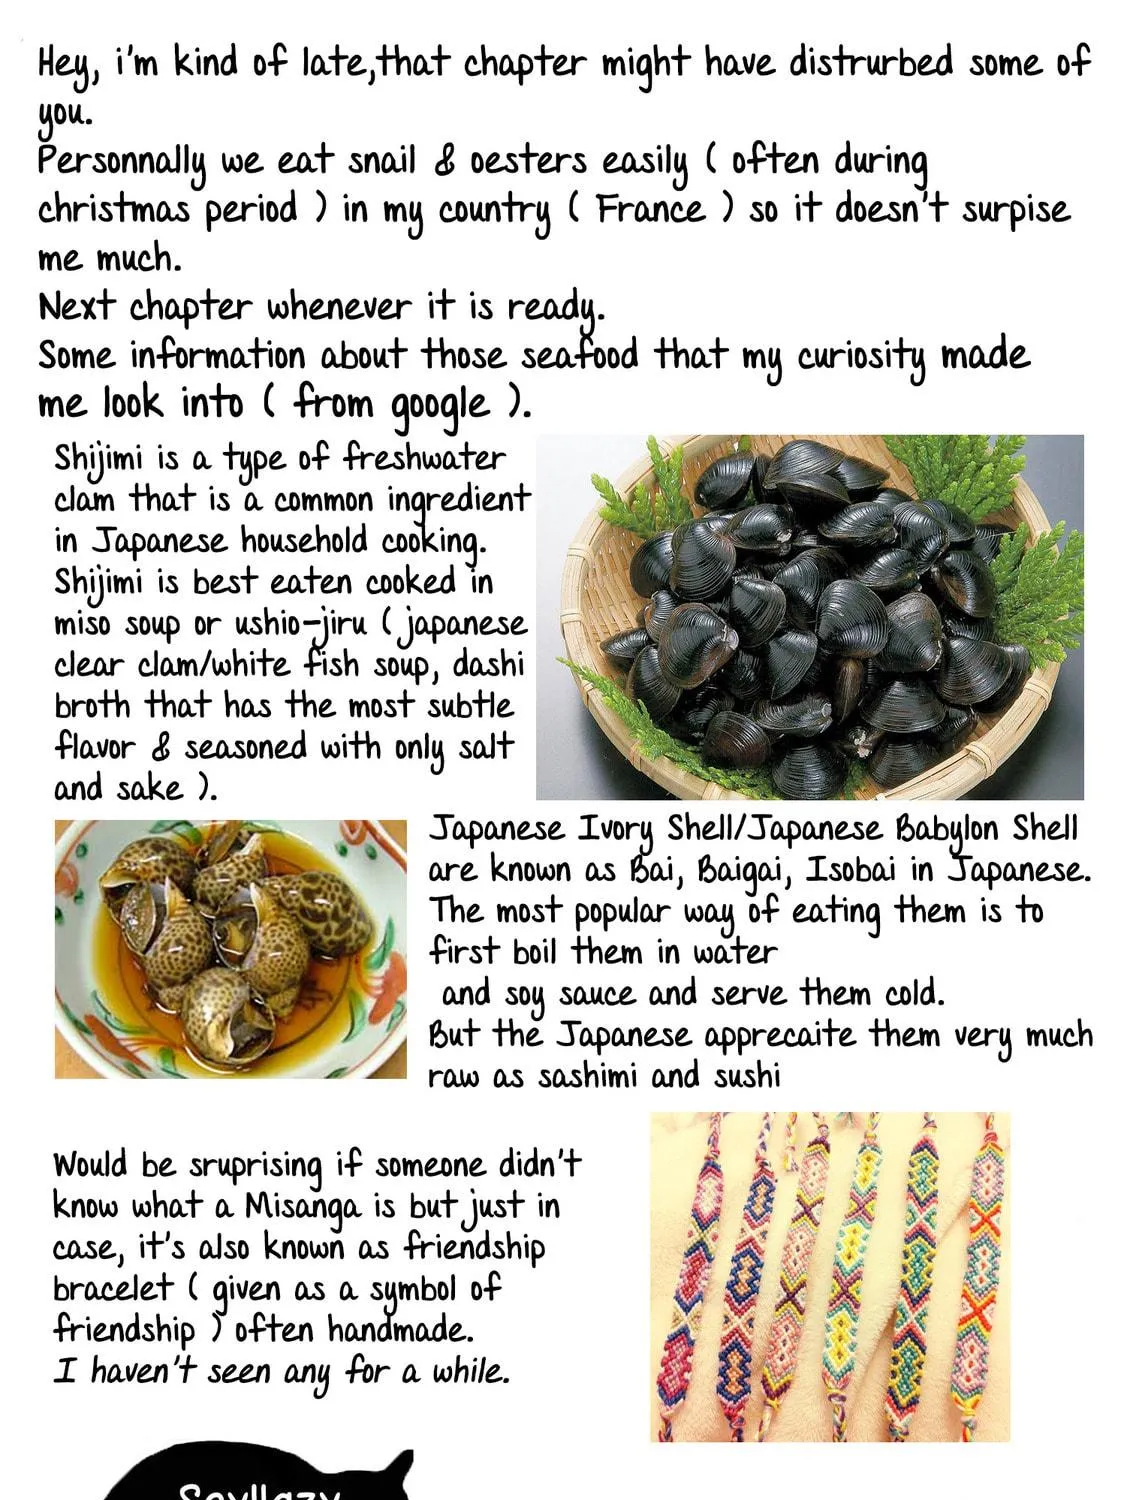 Hey, i'm kind of late,that chapter might have distrurbed some of
you.
Personnally we eat snail & oesters easily ( often during
christmas period ) in my country ( France ) so it doesn't surpise
me much.
Next chapter whenever it is ready.
Some information about those seafood that my curiosity made
me look into ( from google ).
Shijimi is a type of freshwater
clam that is a common ingredient
in Japanese household cooking.
Shijimi is best eaten cooked in
miso soup or ushio-jiru ( japanese
clear clam/white fish soup, dashi
broth that has the most subtle
flavor & seasoned with only salt
and sake ).
Japanese Ivory Shell/Japanese Babylon Shell
are known as Bai, Baigai, Isobai in Japanese.
The most popular way of eating them is to
first boil them in water
and soy sauce and serve them cold.
But the Japanese apprecaite them very much
raw as sashimi and sushi
Would be sruprising if someone didn't
know what a Misanga is but just in
case, it's also known as friendship
bracelet ( given as a symbol of
friendship ) often handmade.
I haven't seen any for a while.